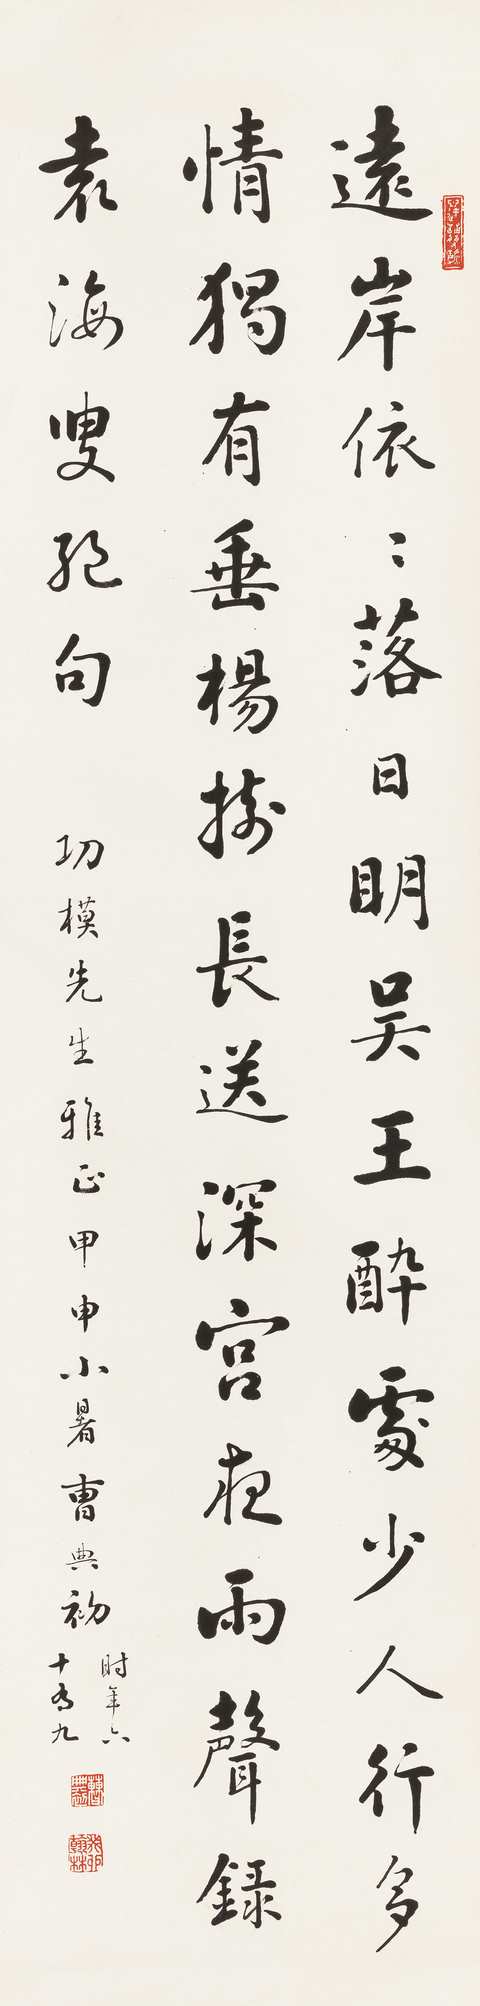 遠岸依〻落日明吳王醉處少人行多
情獨有垂楊樹長送深宮夜雨聲錄
袁海叟絕句
功模先生雅正甲申小暑曹典初
時年六
十有九
癸卯翰林